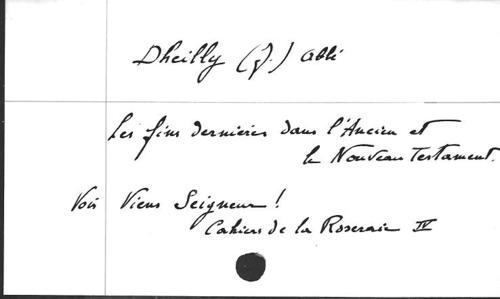 Dheilly (J.) abbé
Les fins dernières dans l'Ancien et
le Nouveau Testament.
Voir Viens Seigneur !
Cahiers de la Roseraie IV